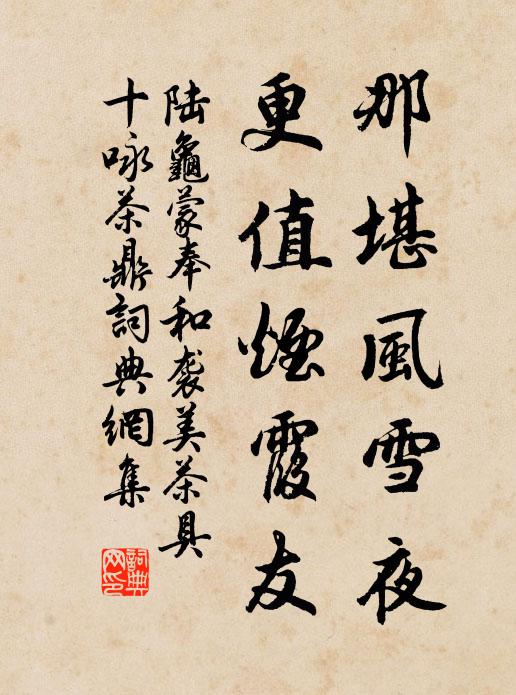 那堪風雪夜
更值煙霞友
陆龜蒙奉和袭美茶具
十咏茶鼎詞典網集
詞典网印